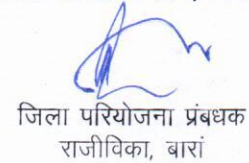 जिला परियोजना प्रंबधक
राजीविका, बारां